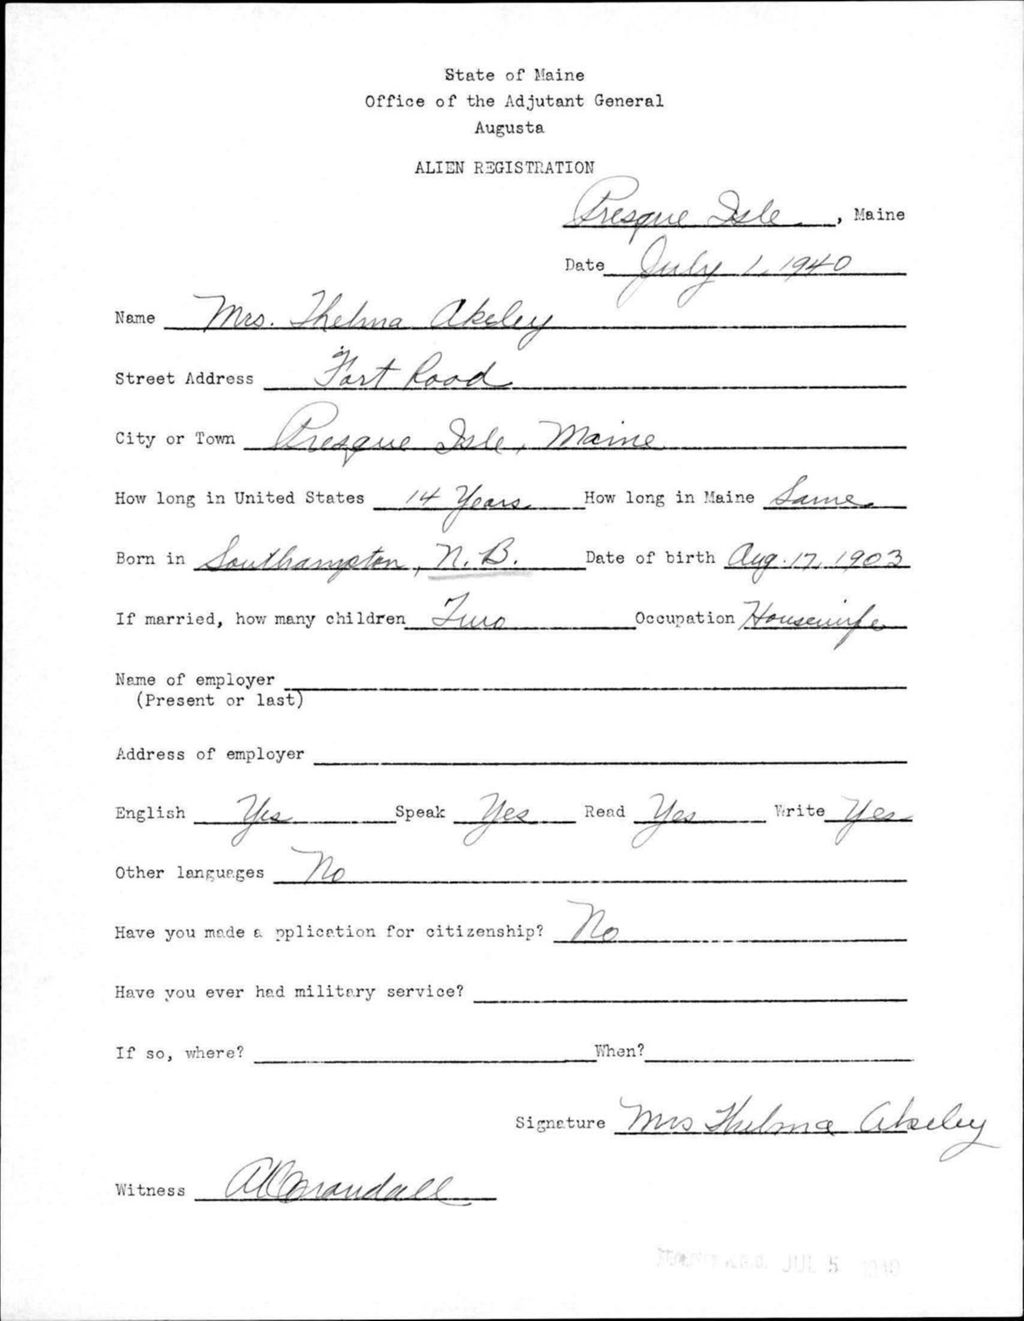 State of Maine
Office of the Adjutant General
Augusta
ALIEN REGISTRATION
Presque Isle, Maine
Date July 1, 1940
Name Mrs. Thelma Akeley
Street Address Fort Road
City or Town Presque Isle, Maine
How long in United States 14 Years. How long in Maine Same
Born in Southampton, N.B. Date of birth Aug. 17, 1903
If married, how many children Two Occupation Housewife
Name of employer
(Present or last)
Address of employer
English Yes Speak Yes Read Yes Write Yes
Other languages No
Have you made a pplication for citizenship? No
Have you ever had military service?
If so, where? When?
Signature Mrs Thelma Akeley
Witness Crandall
JUL 5 1940